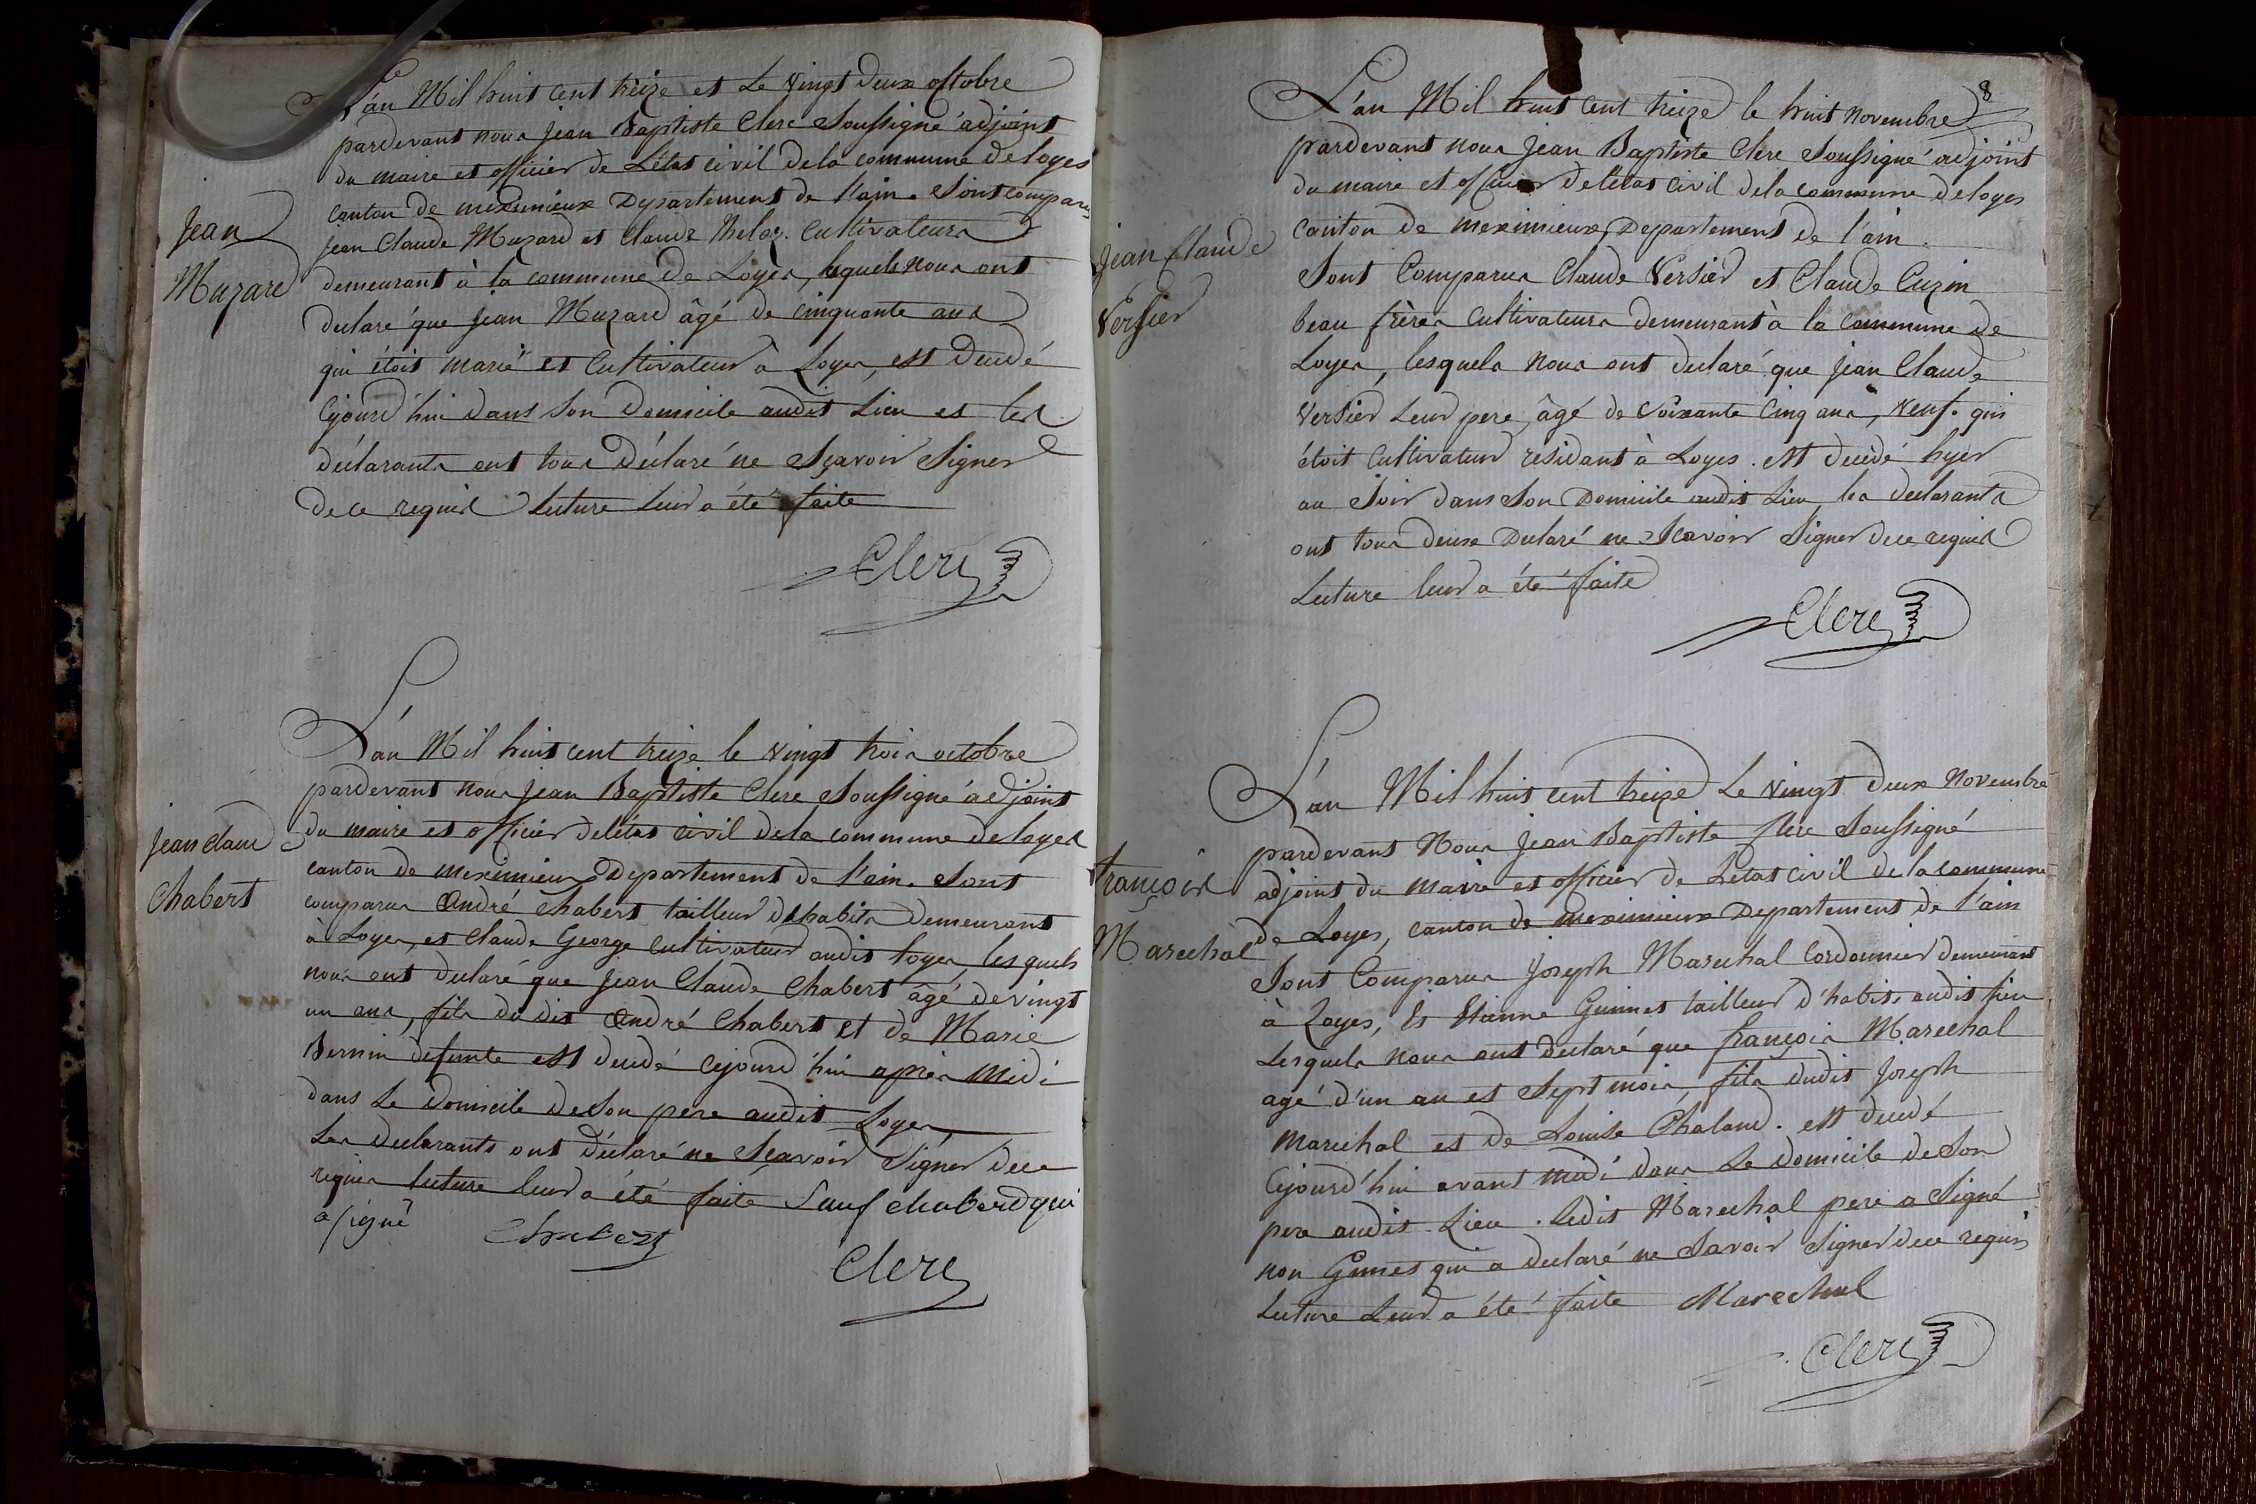 L'an Mil huit cent treize et le vingt deux octobre
pardevant nous jean Baptiste Clerc Soussigné adjoint
du maire et officier de L'état civil de la commune de loyes
canton de meximieux Departement de l'ain. Sont comparus
jean Claude Mazard et Claude cultivateurs
demeurant à la commune de Loyes, lesquels nous ont
declaré que jean Mazard âgé de cinquante ans
qui étoit marié et Cultivateur à Loyes, est decédé
cejourd'hui dans Son domicile audit Lieu et les
déclarants ont tous déclaré ne Sçavoir Signer
de ce requis Lecture leur a été faite
Clerc
Jean
Mazard
L'an Mil huit cent treize le vingt trois octobre
pardevant nous jean Baptiste Clerc Soussigné adjoint
du maire et officier de létat civil de la commune de loyes
canton de meximieux Departement de l'ain. Sont
comparus andré chabert tailleur d'habits demeurant
à Loyes, et Claude George cultivateur audit loyes lesquels
nous ont declaré que jean Claude Chabert âgé de vingt
un ans, fils du dit andré Chabert et de Marie
Bernin defunte est decédé cejourd'hui après midi
dans Le domicile de Son pere audit Loyes
Les declarants ont déclaré ne Sçavoir Signer de ce
requis lecture leur a été faite Sauf chaberd qui
a signé Chabert
Clerc
jean claud
Chabert
8
L'an Mil huit cent treize le huit novembre
pardevant nous jean Baptiste Clerc Soussigné adjoint
du maire et officier de létat civil de la commune de loyes
canton de meximieux Departement de l'ain.
Sont Comparus Claude Versier et Claude Cuzin
beau frères cultivateurs demeurant à la commune de
Loyes, lesquels nous ont declaré que jean Claude
Versier Leur pere, âgé de Soixante cinq ans, veuf. qui
étoit cultivateur résidant à Loyes. est decédé hyer
au Soir dans Son Domicile audit Lieu les declarants
ont tous deux Declaré ne Scavoir Signer de ce requis
Lecture leur a été faite
Clerc
jean Claude
Versier
L'an Mil huit cent treize Le vingt deux Novembre
pardevant Nous jean Baptiste Clerc Soussigné
adjoint du maire et officier de L'état civil de la commune
de Loyes, canton de meximieux Departement de l'ain
Sont Comparus joseph Marechal Cordonnier demeurant
à Loyes, Et Etienne Guinet tailleur d'habits audit lieu
Lesquels nous ont declaré que françois Marechal
agé d'un an et Sept mois, fils dudit joseph
marechal et de Louise Chaland. est decédé
cejourd'hui avant midi dans Le domicile de Son
pere audit Lieu. Ledit Marechal pere a Signé
non Guinet qui a declaré ne Savoir Signer de ce requis
Lecture Leur a été faite Marechal
Clerc
françois
Marechal